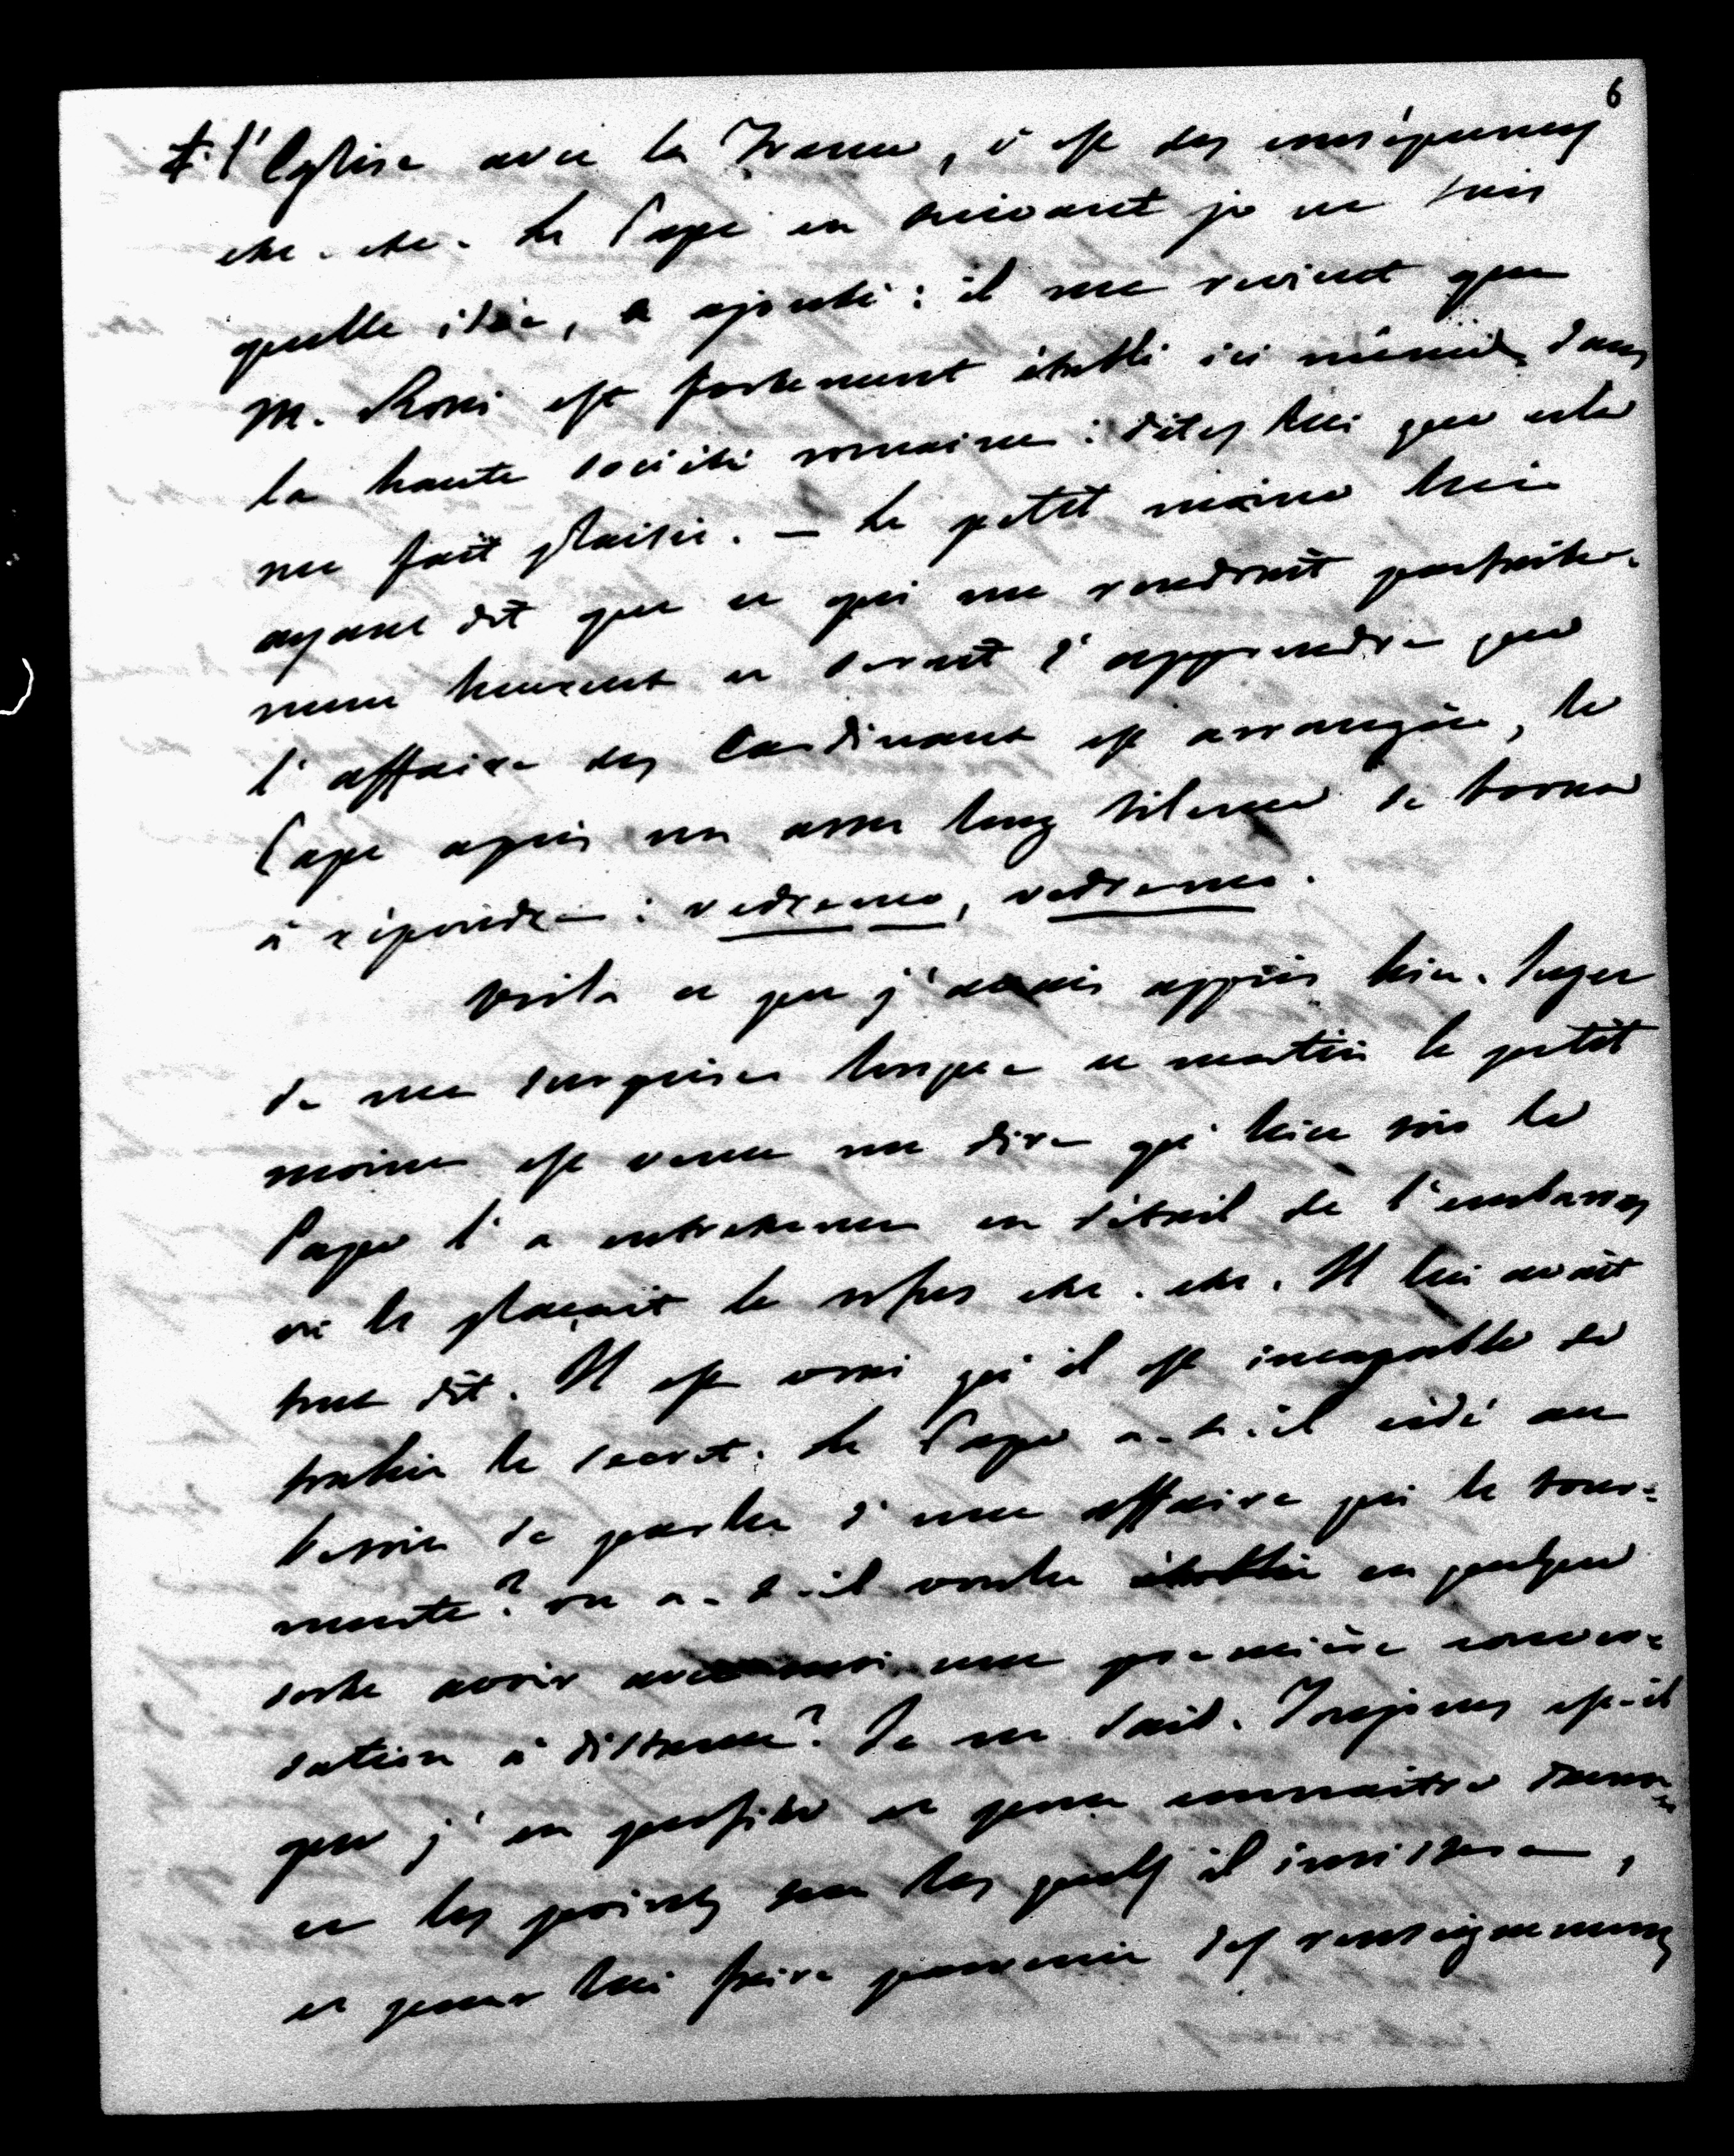 6
de l'Eglise avec la France, c'est des conséquences
etc. etc. Le Pape en suivant je ne sais
quelle idée, a ajouté : il me revient que
M. Rossi est fortement établi ici même dans
la haute société romaine : dites lui que cela
me fait plaisir. — Le petit moine lui
ayant dit que ce qui me rendrait parfaite-
ment heureux ce serait d'apprendre que
l'affaire des Cardinaux est arrangée, le
Pape après un assez long silence se borna
à répondre : vedremo, vedremo.
Voilà ce que j'avais appris hier. Jugez
de ma surprise lorsque ce matin le petit
moine est venu me dire qu'hier soir le
Pape l'a entretenu en détail de l'embarras
où le plaçait le refus etc. etc. Il lui avait
tout dit. Il est vrai qu'il est incapable de
trahir le secret. Le Pape a-t-il cédé au
besoin de parler d'une affaire qui le tour-
mente ? ou a-t-il voulu en quelque
sorte avoir avec moi une première conver-
sation à distance ? Je ne sais. Toujours est-il
que j'en profite et pour connaître
et les points sur les quels il insistera,
et pour lui faire parvenir des renseignements